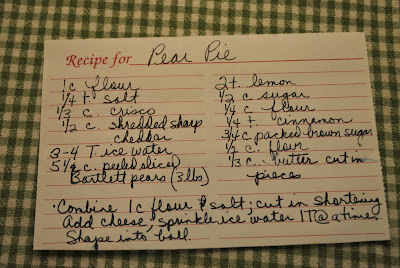 Recipe for Pear Pie
1c flour
1/4 t. salt
1/3 c. crisco
1/2 c. shredded sharp
cheddar
3-4 T. ice water
5 1/2 c. peeled sliced
Bartlett pears (3 lbs)
2 t. lemon
1/2 c sugar
1/4 c. flour
1/4 t. cinnamon
3/4 c packed brown sugar
1/2 c. flour
1/3 c. butter cut in
pieces
·Combine 1c flour & salt; cut in shortening
Add cheese, sprinkle ice water 1T @ a time.
Shape into ball.